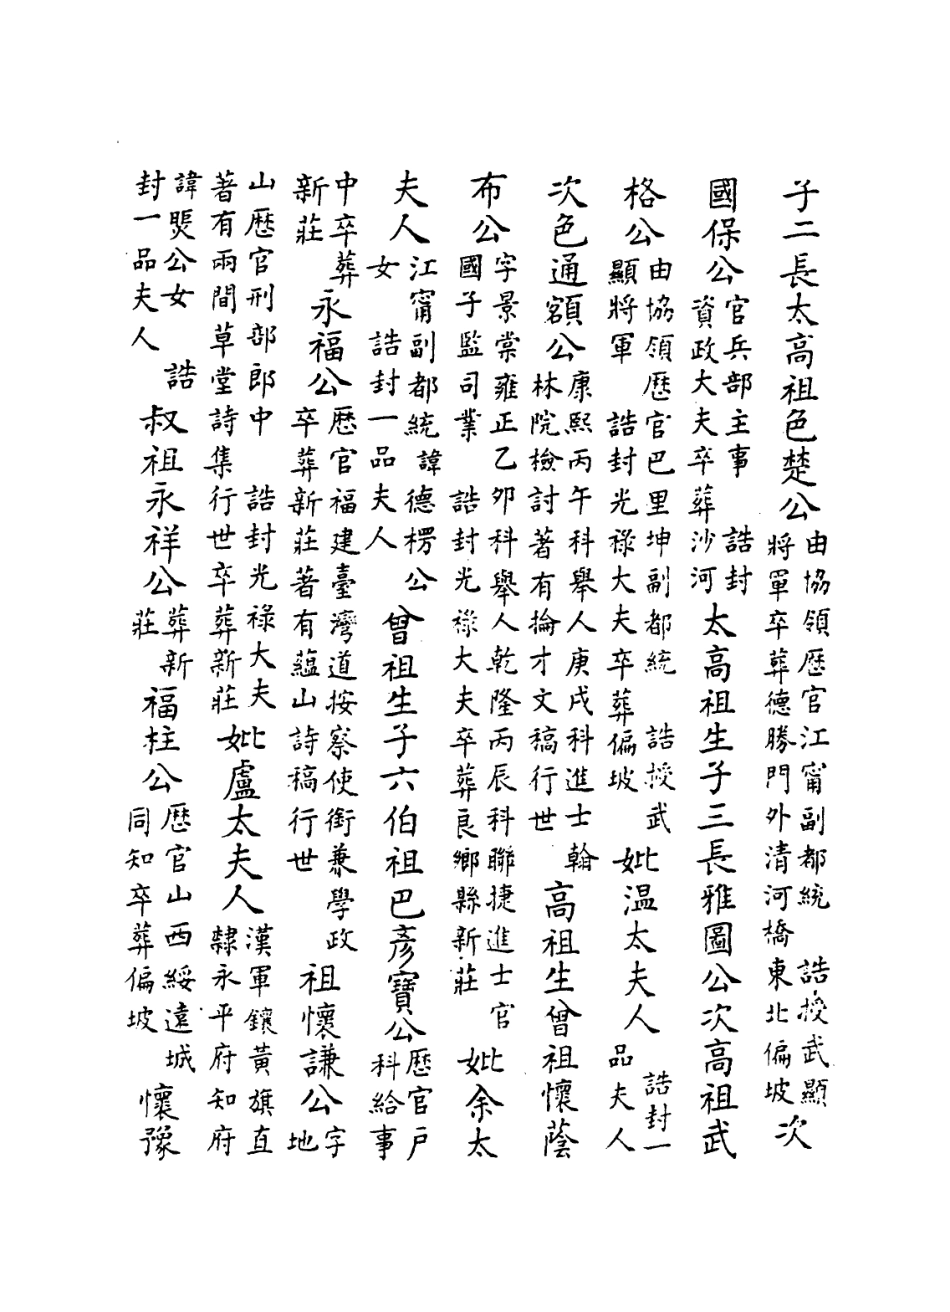 子二長太高祖色楚公由協領歷官江甯副都統 誥授武顯將軍卒葬德勝門外清河橋東北偏坡次
國保公官兵部主事 誥封資政大夫卒葬沙河太高祖生子三長雅圖公次高祖武
格公由協領歷官巴里坤副都統 誥授武顯將軍 誥封光祿大夫卒葬偏坡妣溫太夫人誥封一品夫人
次色通額公康熙丙午科舉人庚戌科進士翰林院檢討著有掄才文稿行世高祖生曾祖懷蔭
布公字景棠雍正乙卯科舉人乾隆丙辰科聯捷進士官國子監司業 誥封光祿大夫卒葬良鄉縣新莊妣余太
夫人江甯副都統諱德楞公女 誥封一品夫人曾祖生子六伯祖巴彥寶公歷官戶科給事
中卒葬新莊永福公歷官福建臺灣道按察使銜兼學政卒葬新莊著有蘊山詩稿行世祖懷謙公字地
山歷官刑部郎中 誥封光祿大夫著有兩間草堂詩集行世卒葬新莊妣盧太夫人漢軍鑲黃旗直隸永平府知府
諱公女 誥封一品夫人叔祖永祥公葬新莊福柱公歷官山西綏遠城同知卒葬偏坡懷豫